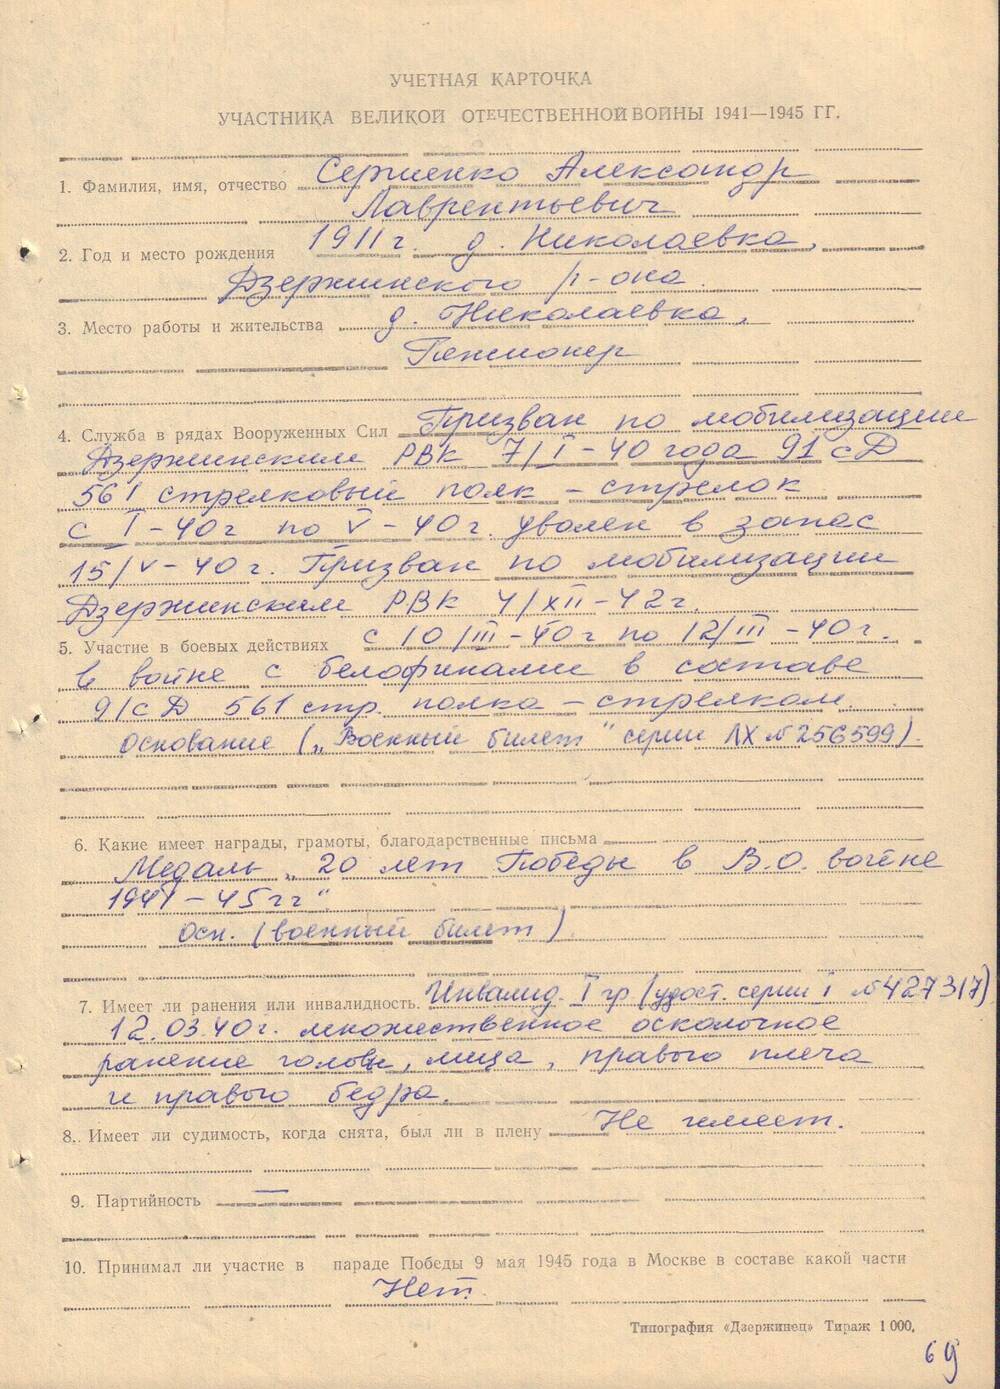 УЧЕТНАЯ КАРТОЧКА
УЧАСТНИКА ВЕЛИКОЙ ОТЕЧЕСТВЕННОЙ ВОЙНЫ 1941—1945 ГГ.
1. Фамилия, имя, отчество Сергиенко Александр
Лаврентьевич
2. Год и место рождения 1911 г. д. Николаевка,
Дзержинского р-она.
3. Место работы и жительства д. Николаевка,
Пенсионер
4. Служба в рядах Вооруженных Сил Призван по мобилизации
Дзержинским РВК 7/I-40 года 91 сД
561 стрелковый полк - стрелок
с I-40 г по V-40 г. уволен в запас
15/V-40 г. Призван по мобилизации
Дзержинским РВК 4/XII-42 г.
5. Участие в боевых действиях с 10/III-40 г по 12/III-40 г.
в войне с белофинами в составе
91 сД 561 стр. полка - стрелком.
основание („Военный билет" серии ЛХ № 256599).
6. Какие имеет награды, грамоты, благодарственные письма
Медаль „20 лет Победы в В.О. войне
1941-45 гг"
осн. (военный билет)
7. Имеет ли ранения или инвалидность. Инвалид. I гр (удост. серии I № 427317)
12.03.40 г. множественное осколочное
ранение головы, лица, правого плеча
и правого бедра.
8. Имеет ли судимость, когда снята, был ли в плену Не имеет.
9. Партийность —
10. Принимал ли участие в параде Победы 9 мая 1945 года в Москве в составе какой части
Нет.
Типография «Дзержинец» Тираж 1 000.
69